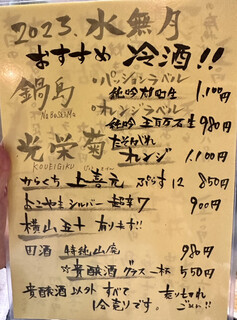 2023. 水無月
おすすめ 冷酒!!
鍋島 ・パッションラベル
NABESHIMA 純吟 雄町 1,100円
・オレンジラベル
純吟 五百万石 980円
光栄菊 たそがれ
KOUEIGIKU オレンジ 1,100円
からくち 上喜元 ぷらす12 850円
シルバー 超辛7 900円
横山五十 有ります!!
田酒 特純 山廃 980円
☆貴醸酒 グラス一杯 550円
貴醸酒以外 すべて 売り切れ
1合売りです。 ごめん!!